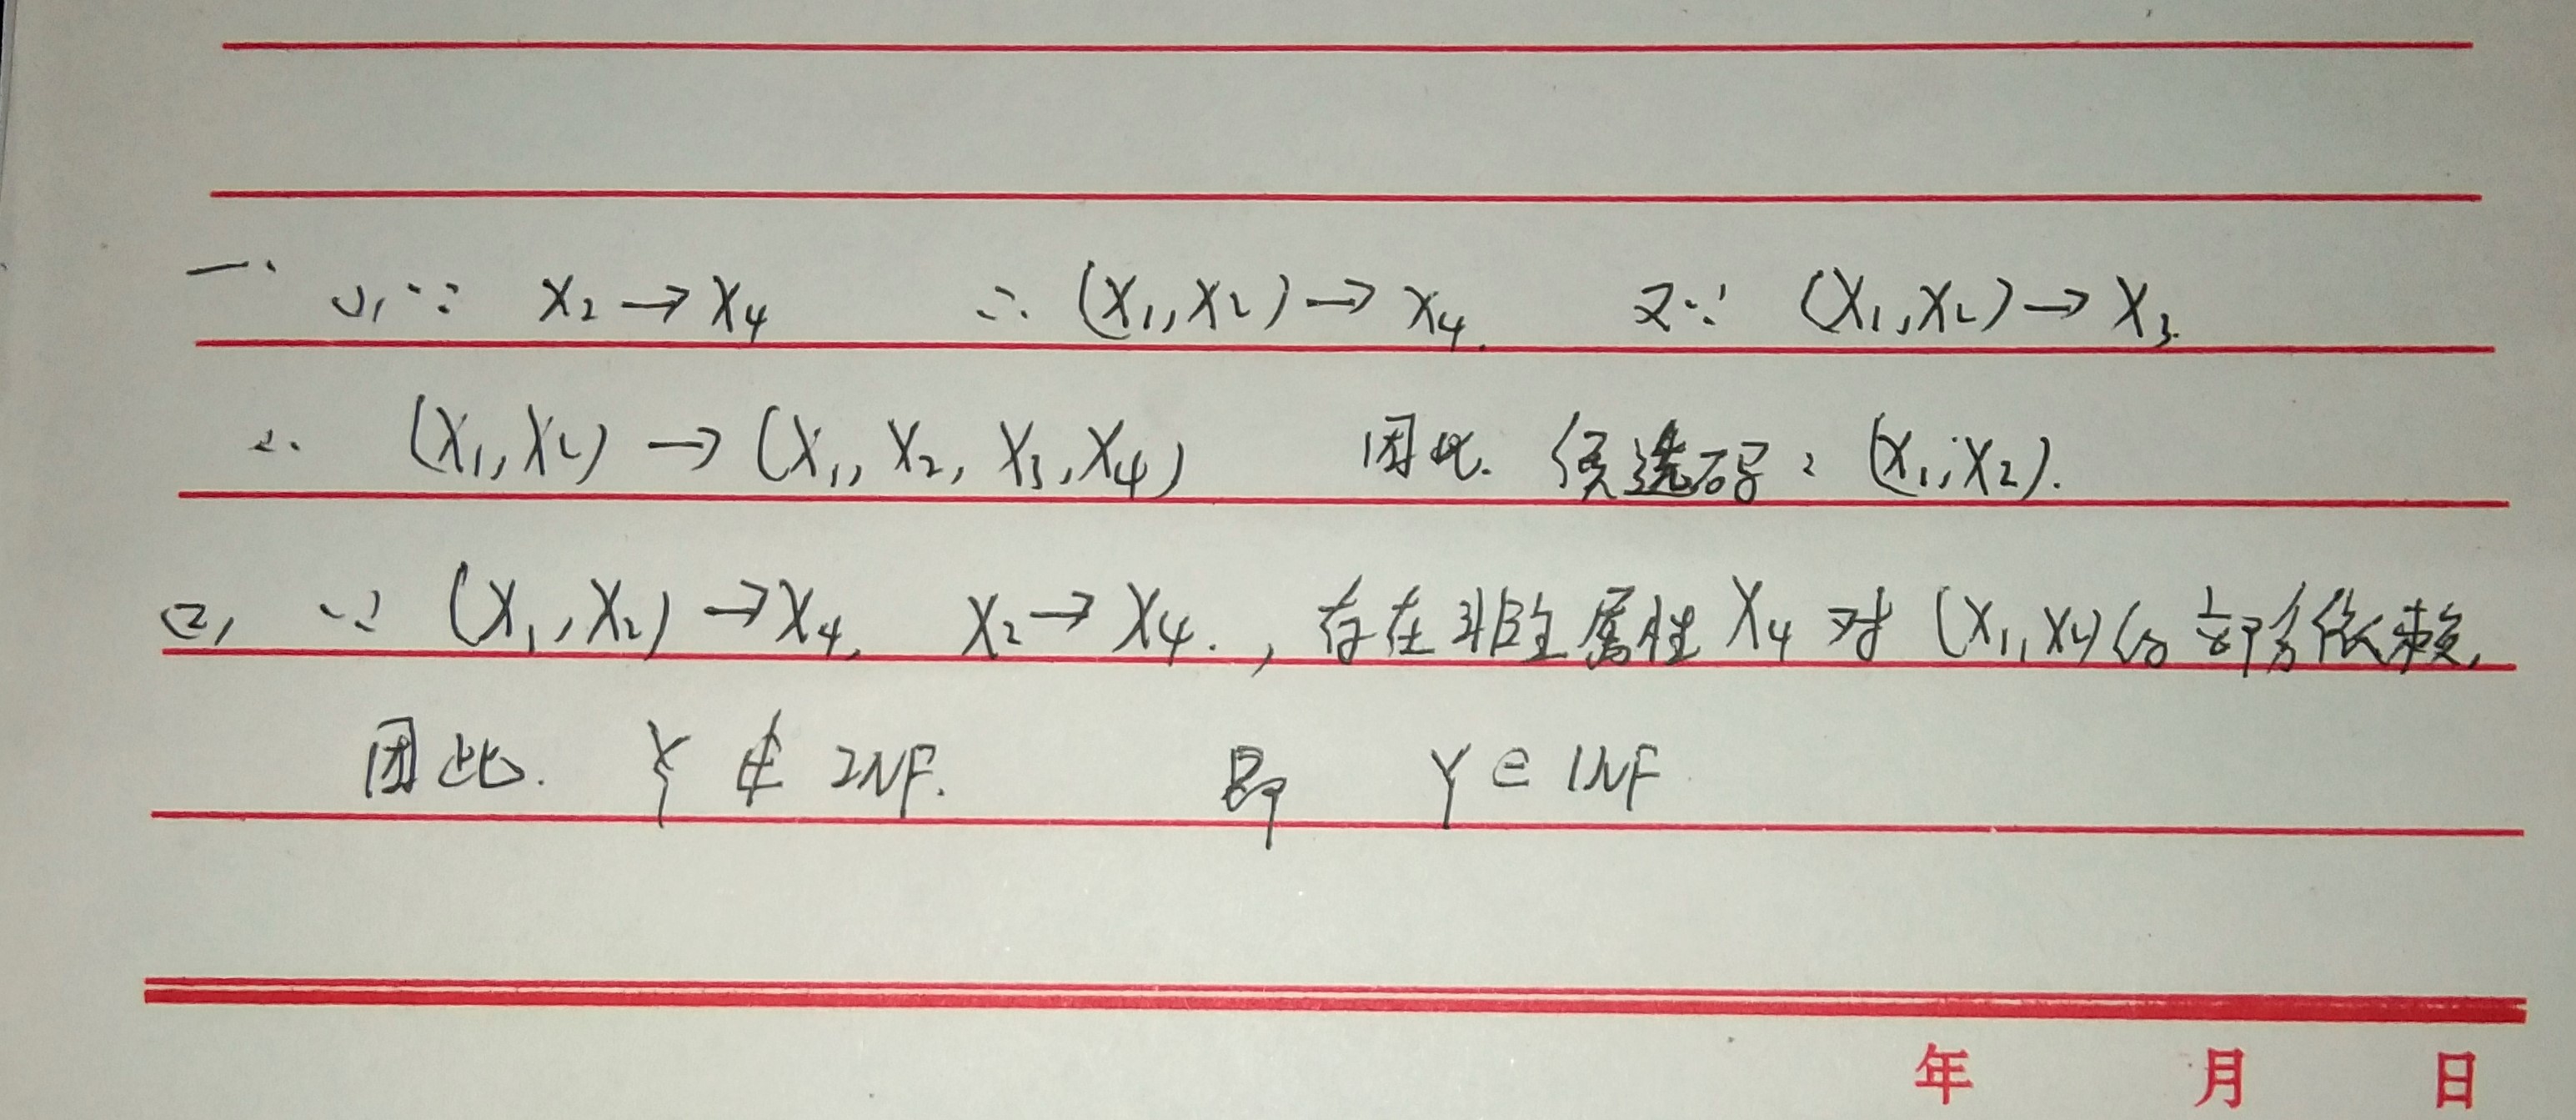 一、 (1) ∵ X₂ → X₄ ∴ (X₁, X₂) → X₄. 又∵ (X₁, X₂) → X₃.
∴ (X₁, X₂) → (X₁, X₂, X₃, X₄) 因此. 候选码: (X₁, X₂).
(2) ∵ (X₁, X₂) → X₄, X₂ → X₄., 存在非主属性 X₄ 对 (X₁, X₂) 的部分依赖,
因此. Y ∉ 2NF. 即 Y ∈ 1NF
年 月 日